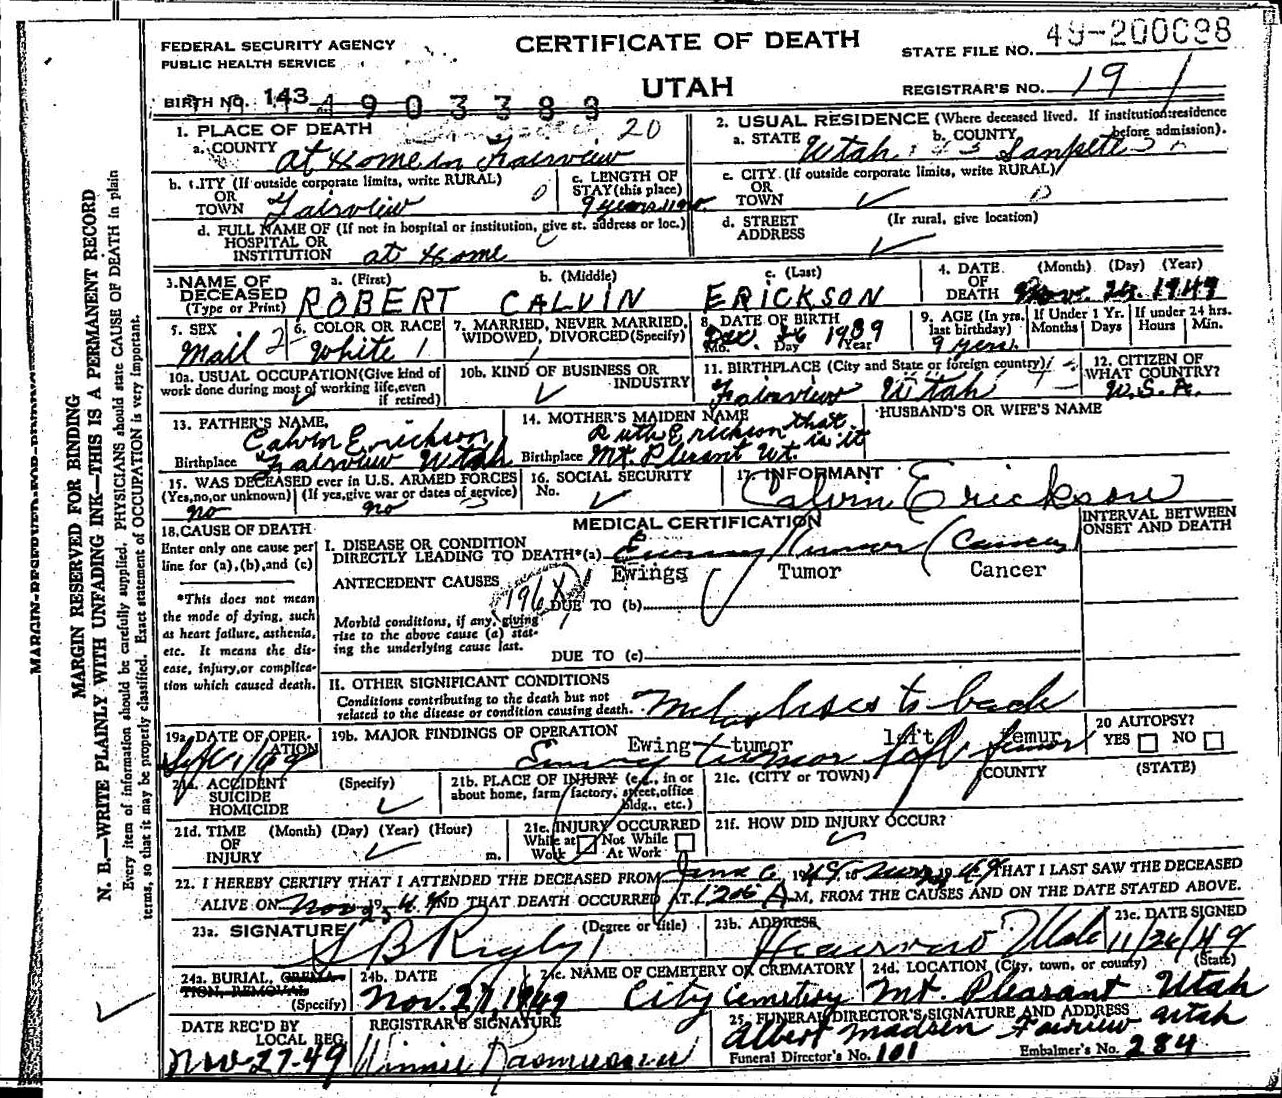 FEDERAL SECURITY AGENCY
PUBLIC HEALTH SERVICE
CERTIFICATE OF DEATH
UTAH
STATE FILE NO. 49-200098
REGISTRAR'S NO. 19
BIRTH NO. 143
1. PLACE OF DEATH 20
a. COUNTY
at Home in Fairview
2. USUAL RESIDENCE (Where deceased lived. If institution: residence before admission).
a. STATE Utah b. COUNTY Sanpete
b. CITY (If outside corporate limits, write RURAL)
OR
TOWN Fairview
c. LENGTH OF
STAY (this place)
9 years 11 mo.
c. CITY (If outside corporate limits, write RURAL)
OR
TOWN
d. FULL NAME OF (If not in hospital or institution, give st. address or loc.)
HOSPITAL OR
INSTITUTION at Home
d. STREET (If rural, give location)
ADDRESS
3. NAME OF a. (First) b. (Middle) c. (Last)
DECEASED
(Type or Print) ROBERT CALVIN ERICKSON
4. DATE (Month) (Day) (Year)
OF
DEATH Nov. 1949
5. SEX
Mail 2
6. COLOR OR RACE
White 1
7. MARRIED, NEVER MARRIED,
WIDOWED, DIVORCED (Specify)
8. DATE OF BIRTH
Dec. 1939
Mo. Day Year
9. AGE (In yrs. last birthday)
9 years
If Under 1 Yr.
Months Days
If under 24 hrs.
Hours Min.
10a. USUAL OCCUPATION (Give kind of
work done during most of working life, even
if retired)
10b. KIND OF BUSINESS OR
INDUSTRY
11. BIRTHPLACE (City and State or foreign country)
Fairview Utah
12. CITIZEN OF
WHAT COUNTRY?
U.S.A.
13. FATHER'S NAME
Calvin Erickson
Birthplace Fairview Utah
14. MOTHER'S MAIDEN NAME
Ruth Erickson that is it
Birthplace Mt. Plesant Ut.
HUSBAND'S OR WIFE'S NAME
15. WAS DECEASED ever in U.S. ARMED FORCES
(Yes, no, or unknown) (If yes, give war or dates of service)
no no
16. SOCIAL SECURITY
No.
17. INFORMANT
Calvin Erickson
18. CAUSE OF DEATH
Enter only one cause per
line for (a), (b), and (c)
*This does not mean
the mode of dying, such
as heart failure, asthenia,
etc. It means the dis-
ease, injury, or complica-
tion which caused death.
MEDICAL CERTIFICATION
INTERVAL BETWEEN
ONSET AND DEATH
I. DISEASE OR CONDITION
DIRECTLY LEADING TO DEATH*(a) Ewings Tumor (Cancer)
Ewings Tumor Cancer
ANTECEDENT CAUSES
196X
DUE TO (b)
Morbid conditions, if any, giving
rise to the above cause (a) stat-
ing the underlying cause last.
DUE TO (c)
II. OTHER SIGNIFICANT CONDITIONS
Conditions contributing to the death but not
related to the disease or condition causing death. Metastases to back
19a. DATE OF OPER-
ATION
19b. MAJOR FINDINGS OF OPERATION
Ewing tumor left femur
Ewing tumor left femur
20 AUTOPSY?
YES NO
21a. ACCIDENT (Specify)
SUICIDE
HOMICIDE
21b. PLACE OF INJURY (e.g., in or
about home, farm, factory, street, office
bldg., etc.)
21c. (CITY or TOWN) (COUNTY) (STATE)
21d. TIME (Month) (Day) (Year) (Hour)
OF
INJURY m.
21e. INJURY OCCURRED
While at Not While
Work At Work
21f. HOW DID INJURY OCCUR?
22. I HEREBY CERTIFY THAT I ATTENDED THE DECEASED FROM June 6, 1949 to Nov 1949 THAT I LAST SAW THE DECEASED
ALIVE ON Nov 25 1949 AND THAT DEATH OCCURRED AT 1206 A M, FROM THE CAUSES AND ON THE DATE STATED ABOVE.
23a. SIGNATURE (Degree or title)
S B Rigby
23b. ADDRESS
Utah
23c. DATE SIGNED
11/26/49
24a. BURIAL, CREMA-
TION, REMOVAL
(Specify)
24b. DATE
Nov. 27, 1949
24c. NAME OF CEMETERY OR CREMATORY
City Cemetery
24d. LOCATION (City, town, or county) (State)
Mt. Pleasant Utah
DATE REC'D BY
LOCAL REG.
Nov-27-49
REGISTRAR'S SIGNATURE
Winnie Rasmussen
25. FUNERAL DIRECTOR'S SIGNATURE AND ADDRESS
Albert Madsen Fairview Utah
Funeral Director's No. 101 Embalmer's No. 284
MARGIN RESERVED FOR BINDING
N. B.—WRITE PLAINLY WITH UNFADING INK—THIS IS A PERMANENT RECORD
Every item of information should be carefully supplied. PHYSICIANS should state CAUSE OF DEATH in plain
terms, so that it may be properly classified. Exact statement of OCCUPATION is very important.